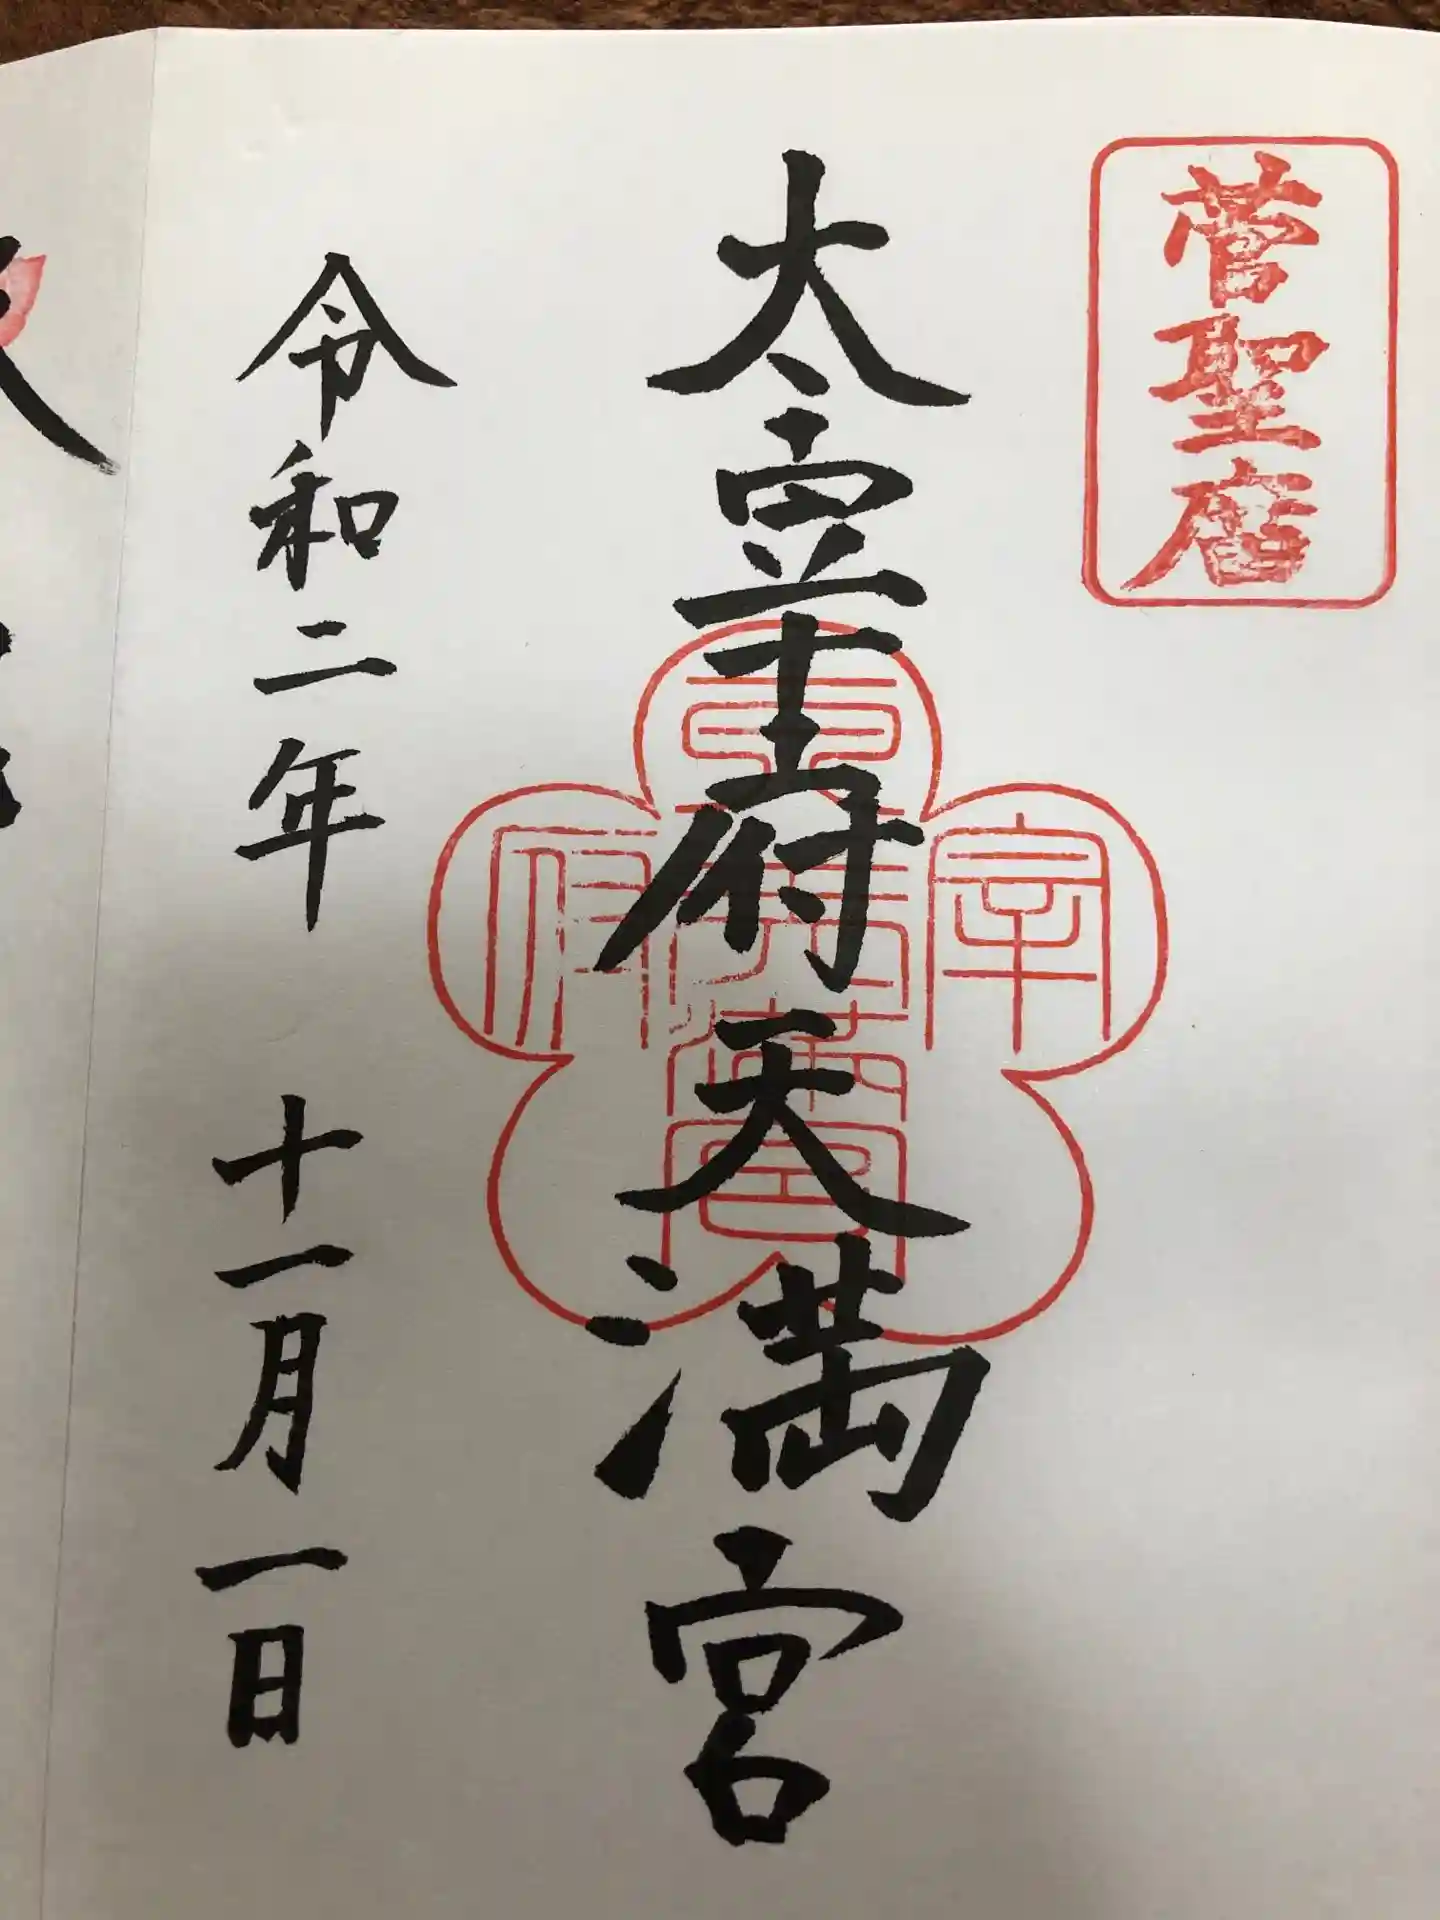 菅聖庿
太宰府天満宮
宰
府
令和二年 十一月一日